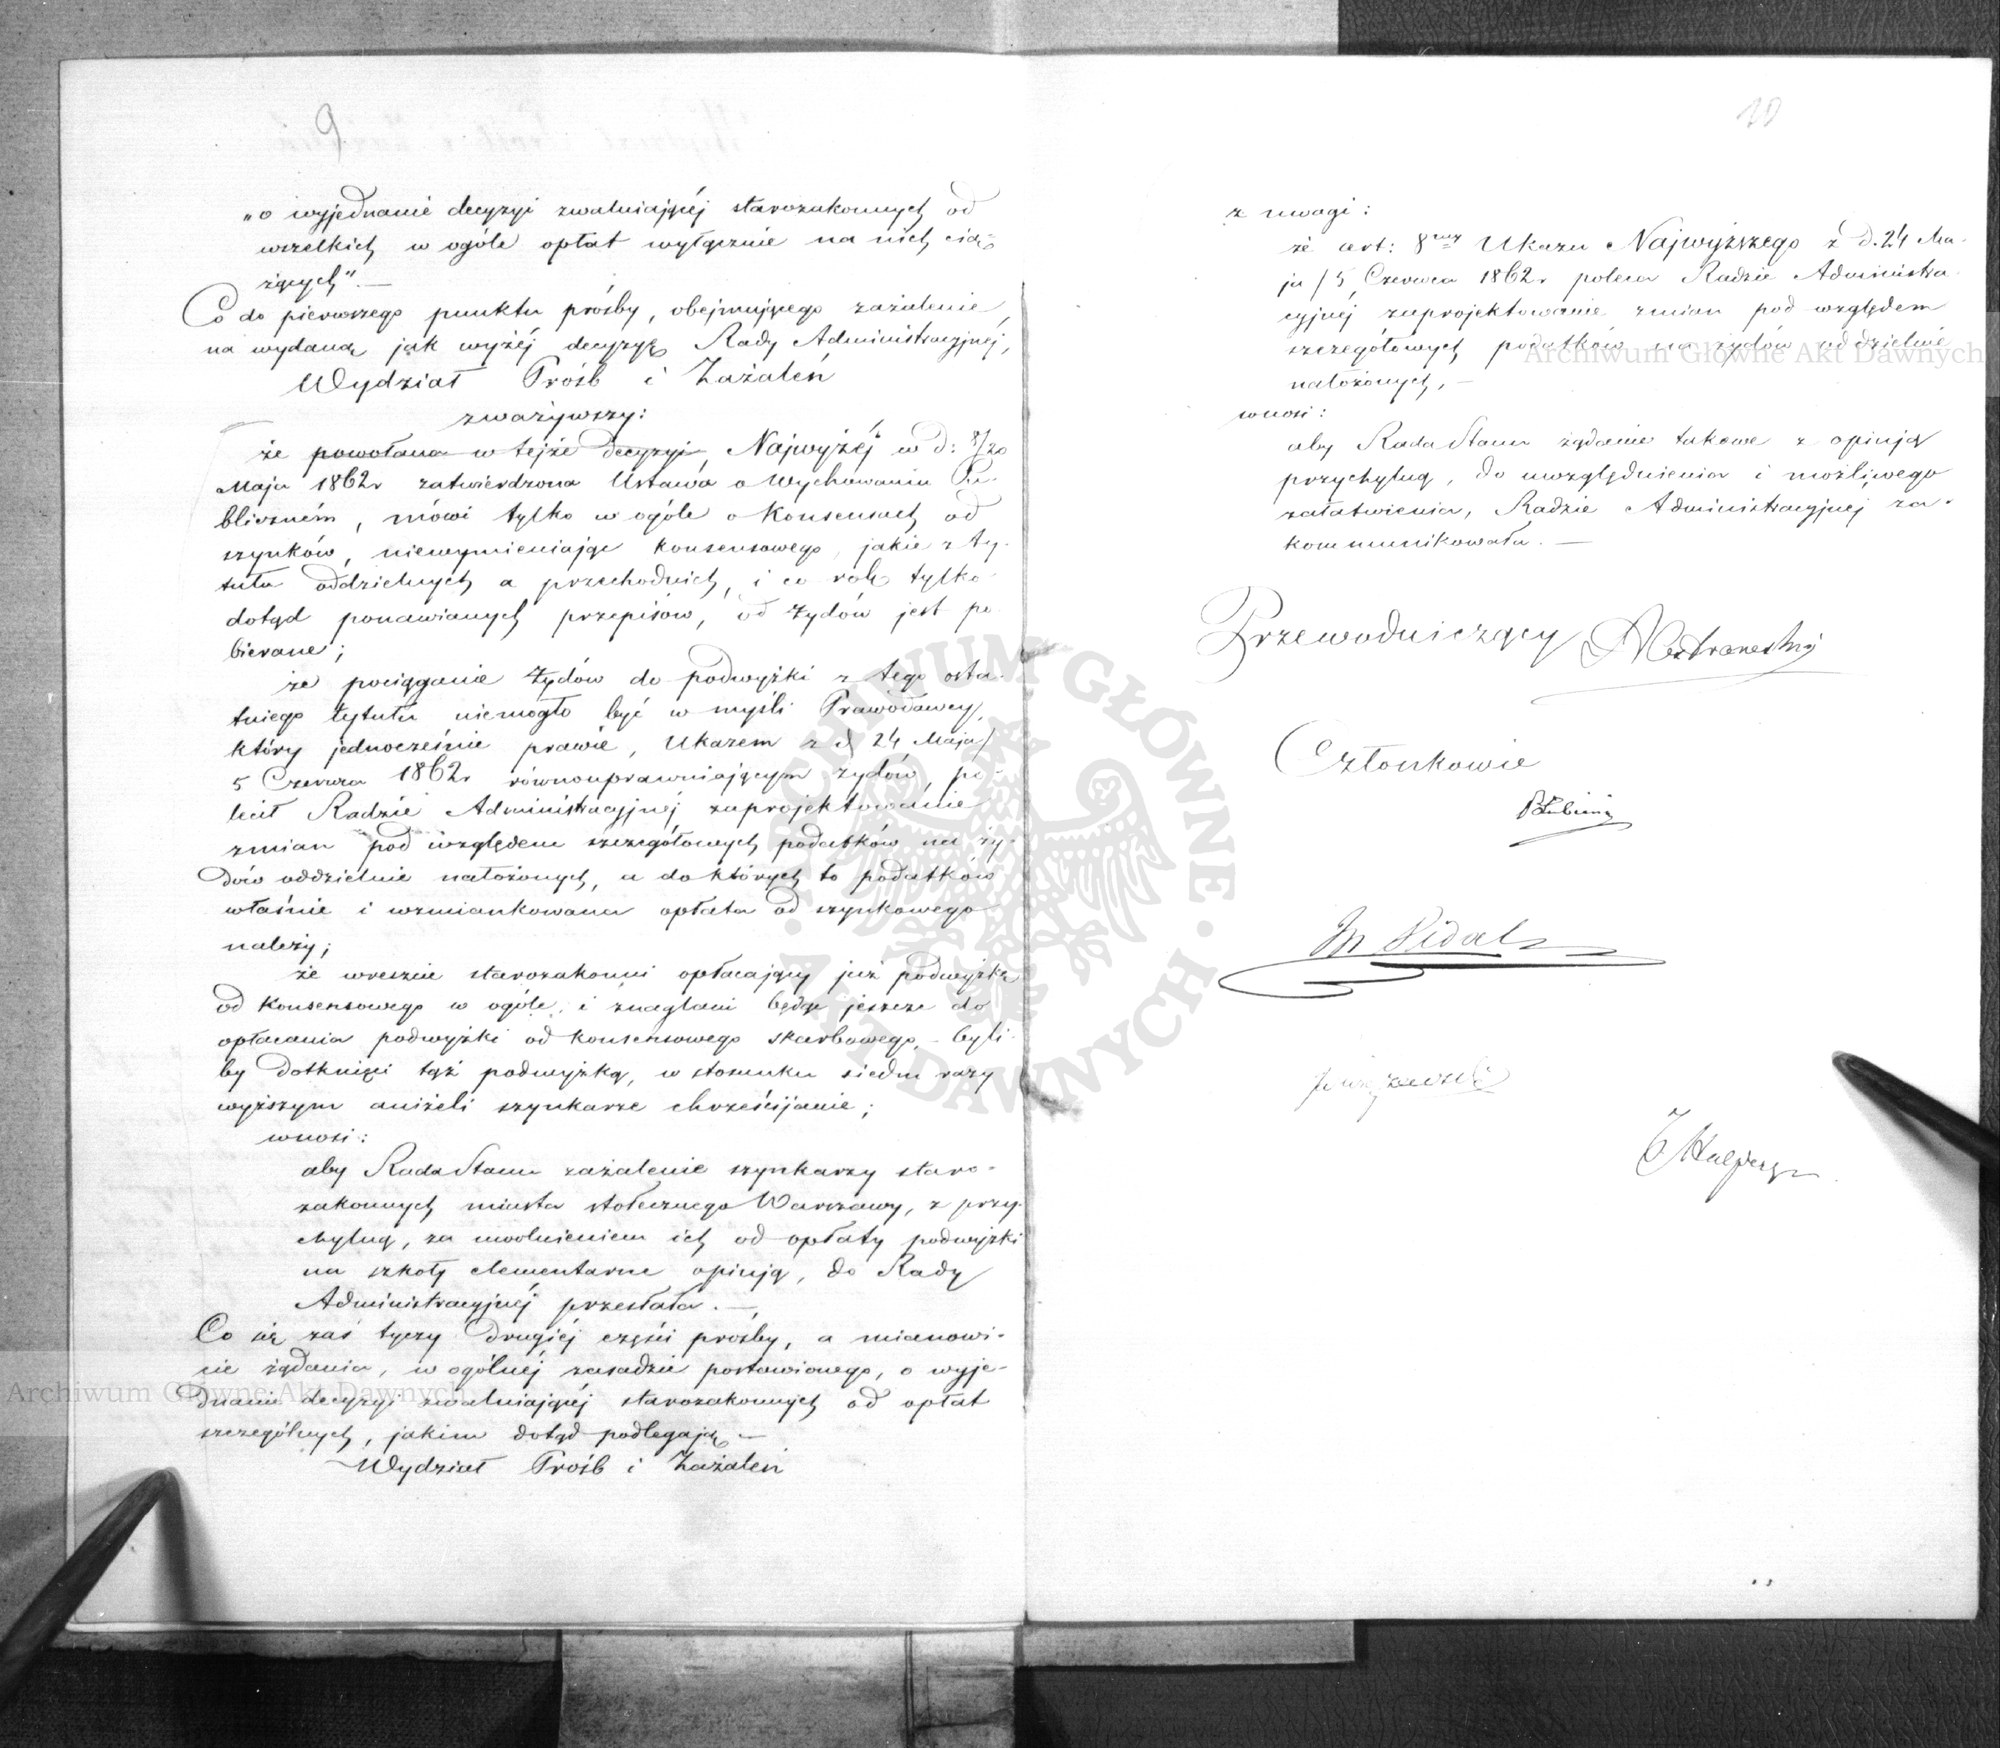 9
„o wyjednanie decyzyi zwalniającéj starozakonnych od
wszelkich w ogóle opłat wyłącznie na nich cią-
żących”. —
Co do pierwszego punktu prośby, obejmującego zażalenie
na wydaną jak wyżéj decyzyę Rady Administracyjnéj,
Wydział Próśb i Zażaleń
zważywszy:
że powołana w tejże decyzyi, Najwyżéj w d: 8/20
Maja 1862 r zatwierdzona Ustawa o Wychowaniu Pu-
bliczném, mówi tylko w ogóle o Konsensach od
szynków, niewymieniając konsensowego, jakie z ty-
tułu oddzielnych a przechodnich, i co rok tylko
dotąd ponawianych przepisów, od żydów jest po-
bierane;
że pociąganie żydów do podwyżki z tego osta-
tniego tytułu niemogło być w myśli Prawodawcy,
który jednocześnie prawie, Ukazem z d 24 Maja/
5 Czerwca 1862 r równouprawniającym żydów, po-
lecił Radzie Administracyjnéj zaprojektowanie
zmian pod względem szczegółowych podatków na ży-
dów oddzielnie nałożonych, a do których to podatków
właśnie i wzmiankowana opłata od szynkowego
należy;
że wreszcie starozakonni opłacający już podwyżkę
od konsensowego w ogóle, i znaglani będąc jeszcze do
opłacania podwyżki od konsensowego skarbowego, – byli-
by dotknięci tąż podwyżką, w stosunku siedm razy
wyższym aniżeli szynkarze chrześcijanie;
wnosi:
aby Rada Stanu zażalenie szynkarzy staro-
zakonnych miasta stołecznego Warszawy, z przy-
chylną, za uwolnieniem ich od opłaty podwyżki
na szkoły elementarne opinją, do Rady
Administracyjnéj przesłała. —
Co się zaś tyczy drugiéj części prośby, a mianowi-
cie żądania, w ogólnéj zasadzie postawionego, o wyje-
dnanie decyzyi zwalniającéj starozakonnych od opłat
szczególnych, jakim dotąd podlegają —
Wydział Próśb i Zażaleń
10
z uwagi:
że art: 8my Ukazu Najwyższego z d. 24 Ma-
ja/5 Czerwca 1862 r poleca Radzie Administra-
cyjnéj zaprojektowanie zmian pod względem
szczegółowych podatków na żydów oddzielnie
nałożonych, —
wnosi:
aby Rada Stanu żądanie takowe z opinją
przychylną, do uwzględnienia i możliwego
załatwienia, Radzie Administracyjnéj za-
kommunikowała. —
Przewodniczący
Członkowie
Archiwum Główne Akt Dawnych
Archiwum Główne Akt Dawnych
ARCHIWUM GŁÓWNE · AKT DAWNYCH ·